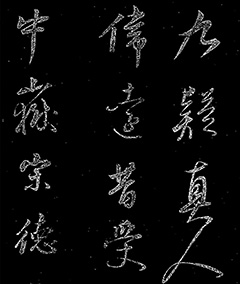 九疑真人
偉遠昔受
中嶽宗德